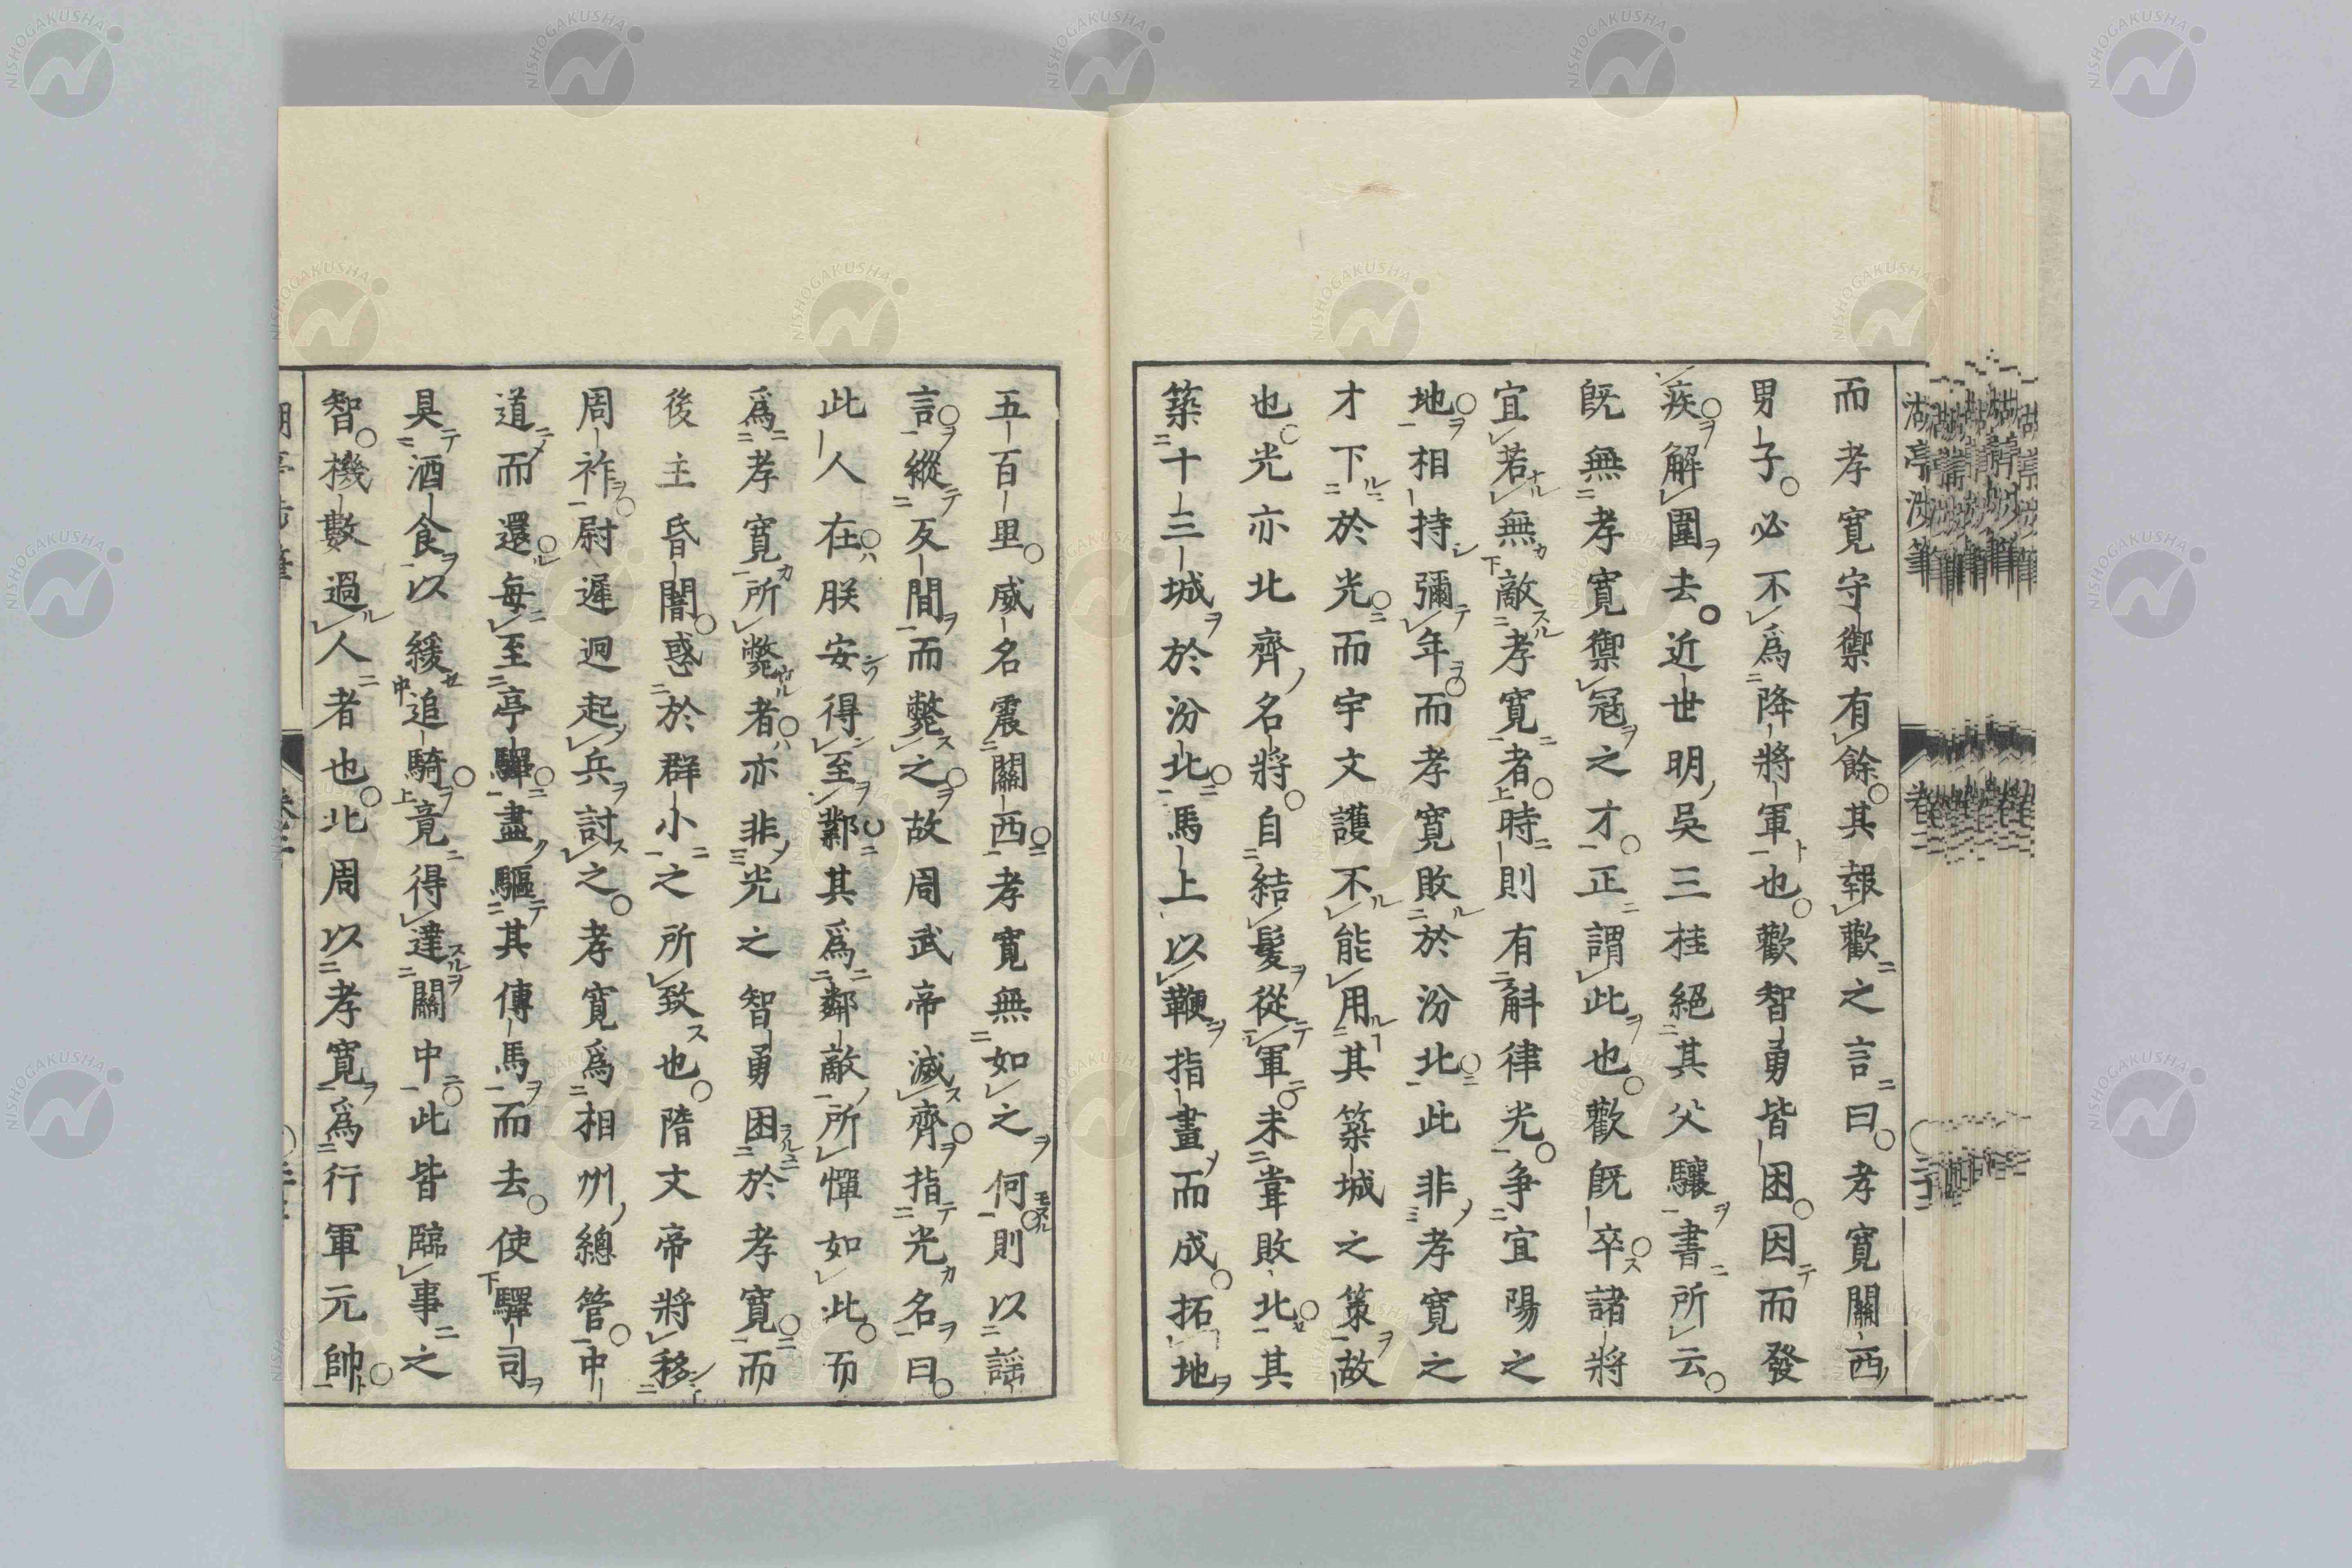 而孝寛守禦有餘其報歡之言曰孝寛關西
男子必不爲降將軍也歡智勇皆困因而發
疾解圍去近世明吳三桂絕其父驤書所云
既無孝寛禦冦之才正謂此也歡既卒諸將
宜若無敵孝寛者時則有斛律光爭宜陽之
地相持彌年而孝寛敗於汾北此非孝寛之
才下於光而宇文護不能用其築城之策故
也光亦北齊名將自結髮從軍未甞敗北其
築十三城於汾北馬上以鞭指畫而成拓地
五百里威名震關西孝寛無如之何則以謡
言縱反間而斃之故周武帝滅齊指光名曰
此人在朕安得至鄴其爲鄰敵所憚如此而
爲孝寛所斃者亦非光之智勇困於孝寛而
後主昏闇惑於群小之所致也隋文帝將移
周祚尉遲迥起兵討之孝寛爲相州總管中
道而還每至亭驛盡驅其傳馬而去使驛司
具酒食以緩追騎竟得達關中此皆臨事之
智機數過人者也北周以孝寛爲行軍元帥
NISHOGAKUSHA